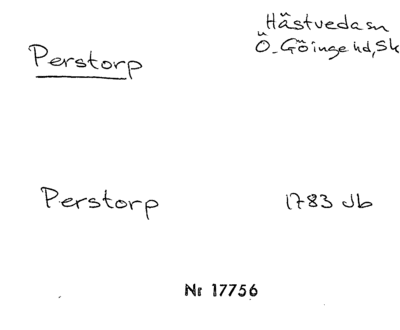 Hästveda sn
Perstorp
Ö. Göinge hd, Sk
Perstorp 1783 Jb
Nr 17756